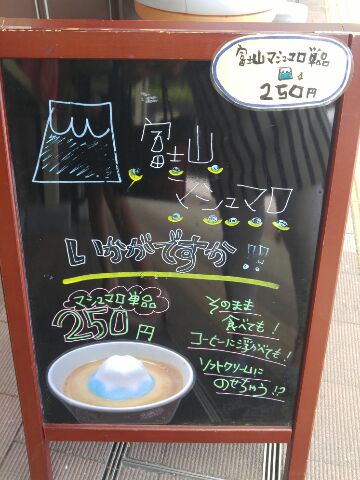 富士山マシュマロ単品
250円
富士山
マシュマロ
いかがですか!!
マシュマロ単品
250円
そのまま
食べても!
コーヒーに浮かべても!
ソフトクリームに
のせちゃう!?